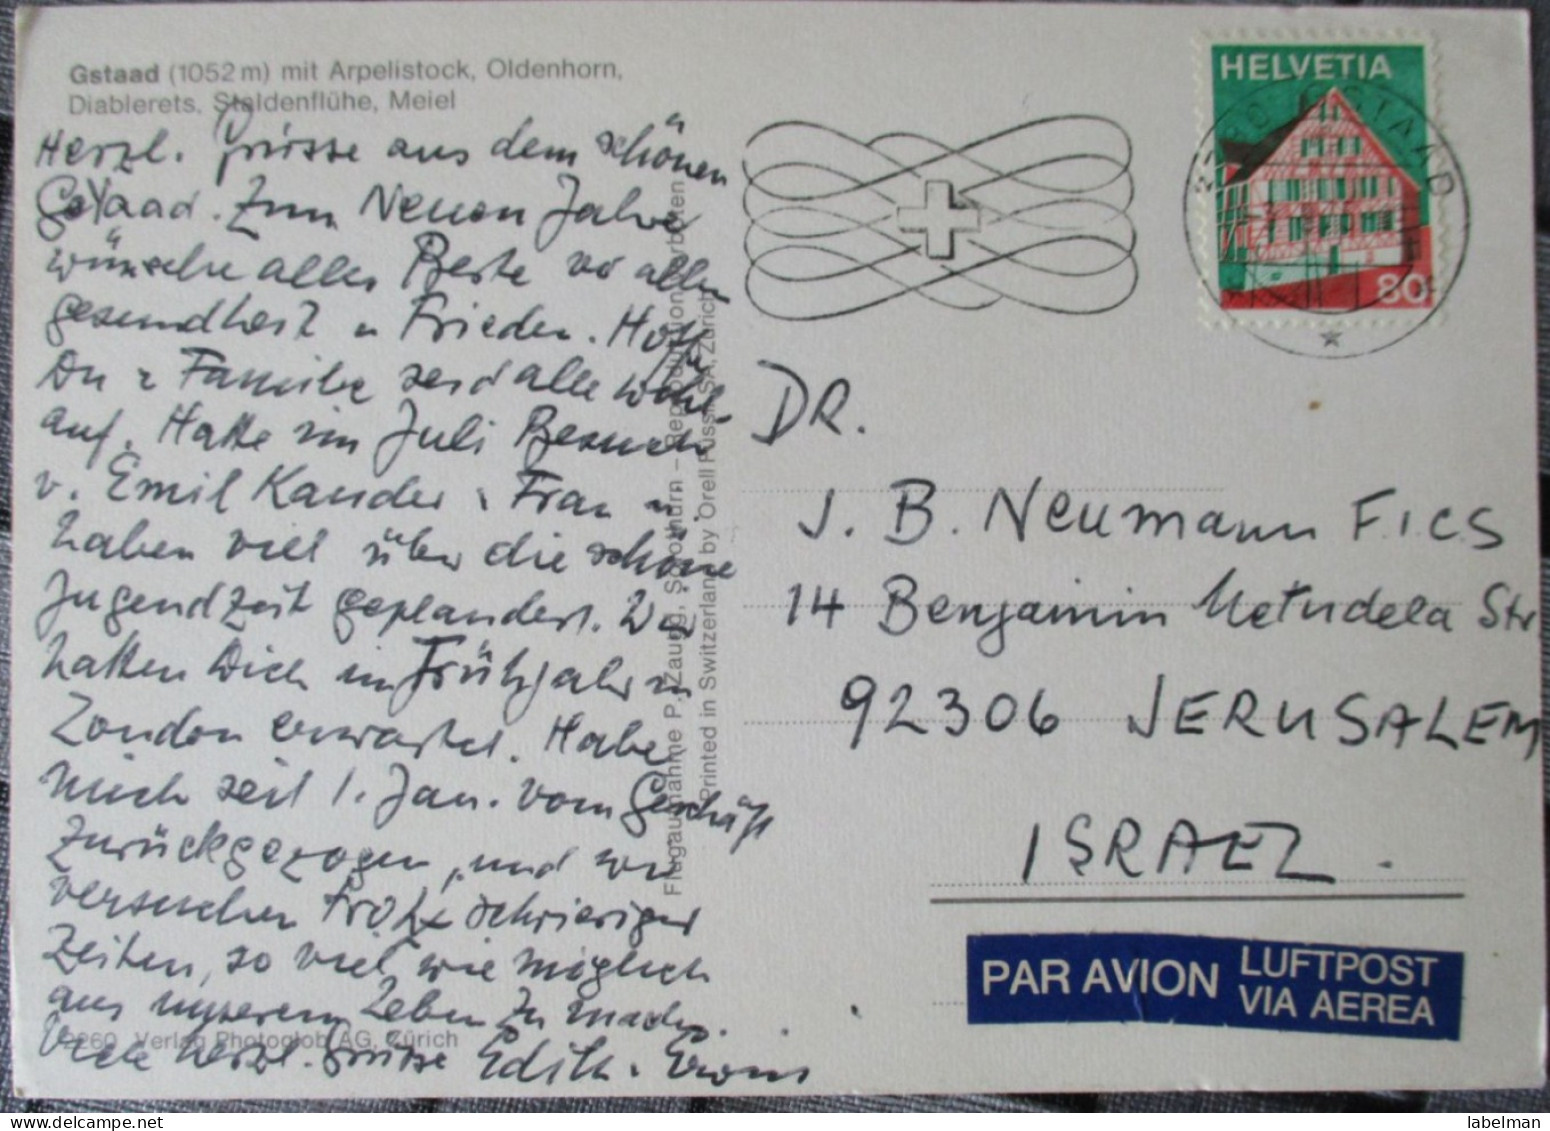 Gstaad (1052 m) mit Arpelistock, Oldenhorn,
Diablerets, Staldenflühe, Meiel
Herzl. Grüsse aus dem schönen
Gstaad. Zum Neuen Jahre
wünsche alles Beste vor allem
gesundheit u Frieden. Hoffe
Du & Familie seid alle wohl-
auf. Hatte im Juli Besuch
v. Emil Kander & Frau u.
haben viel über die schöne
Jugendzeit geplaudert. Wir
hatten Dich im Frühjahr in
London erwartet. Habe
mich seit 1. Jan. vom Geschäft
zurückgezogen, und wir
versuchen trotz schwieriger
Zeiten, so viel wie möglich
aus unserem Leben zu machen.
Viele herzl. Grüsse Edith &
260 Verlag Photoglob AG, Zürich
Flugaufnahme P. Zaugg, Solothurn – Reproduktion verboten
Printed in Switzerland by Orell Füssli SA, Zürich
HELVETIA
80
3780 GSTAAD
DR.
J. B. Neumann F.I.C.S
14 Benjamin Metudela Str.
92306 JERUSALEM
ISRAEL.
PAR AVION
LUFTPOST
VIA AEREA
labelman
www.delcampe.net